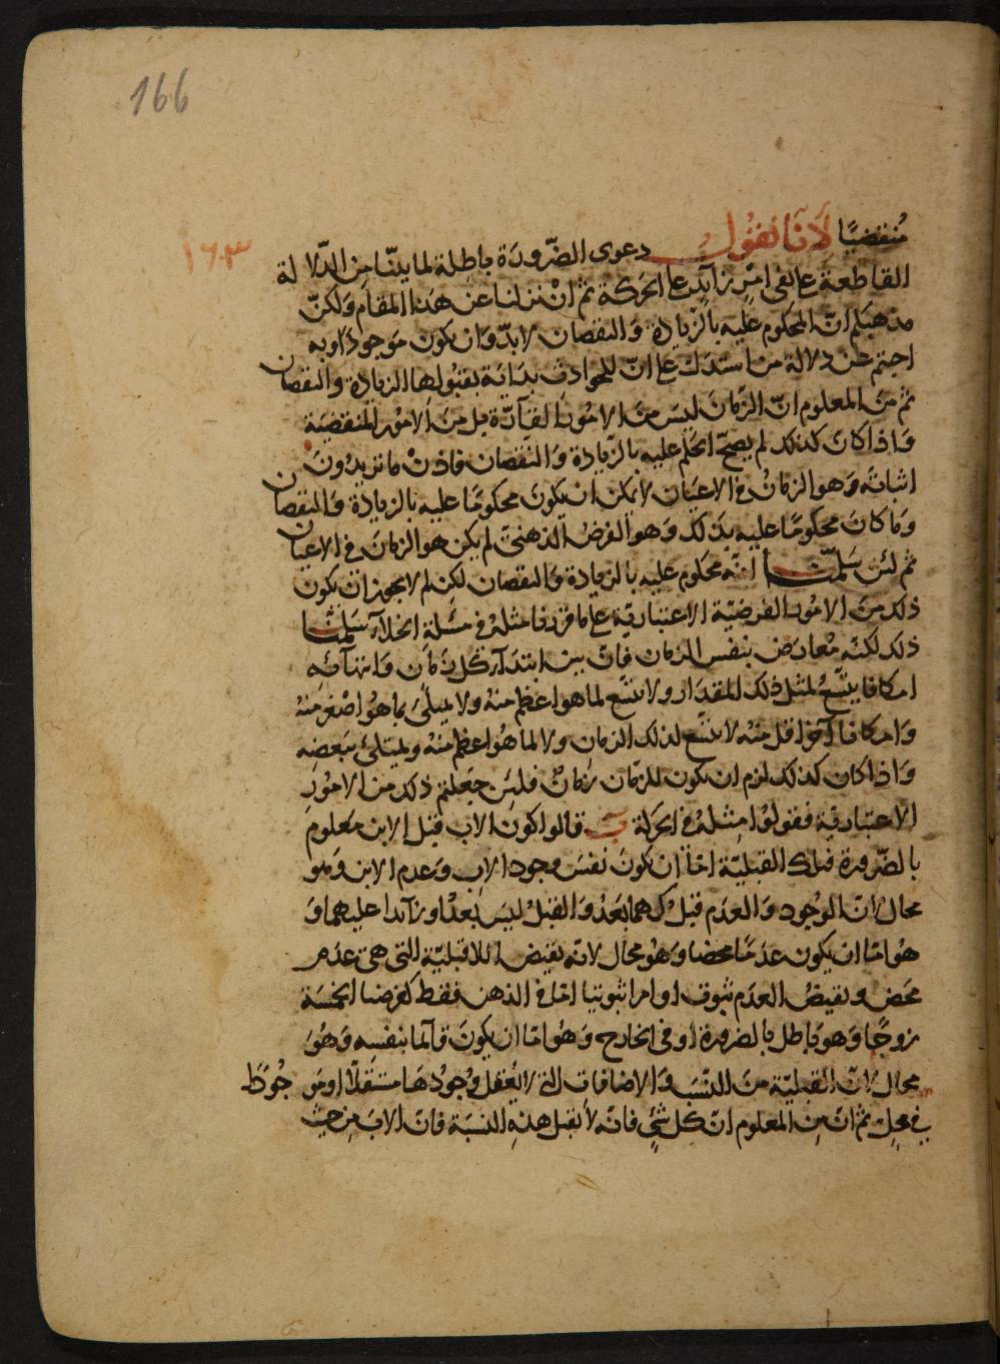 166
١٦٣
منقضيًا لانا نقول دعوى الضّرورة باطلة لما بينّا من الدّلالة
القاطعة على نفى امرٍ زآيدٍ على الحركة ثم انْ نزلنا عن هذا المقام ولكنّ
هبكم انّ المحكوم عليه بالزّيادة والنقصان لا بدّ وان يكون موجودًا وبه
اجبتم عن دلالة من استدل على انّ للحوادث بداية بقبولها الزيادة والنقصان
ثم من المعلوم انّ الزّمان ليس من الامور القآرّة بل من الامور المنقضية
واذا كان كذلك لم يصحّ الحكم عليه بالزّيادة والنقصان فاذنْ ما تريدون
اثباته وهو الزمانُ فى الاعيان لا يمكن ان يكون محكومًا عليه بالزيادة والنقصان
وما كان محكومًا عليه بذلك وهو الفرضُ الذهنىّ لم يكن هو الزمان فى الاعيان
ثم لئن سلّمنا انّه محكوم عليه بالزيادة والنقصان لكن لم لا يجوز ان يكون
ذلك من الامور الفرضيّة الاعتباريّة على ما قررنا مثله فى مسئلة الخلآء سلمنا
ذلك لكنّه مُعارَض بنفس الزمان فانّ بين ابتدآء كل زمان وانتهآئه
امكانا يتّسعُ لمثل ذلك المقدار ولا يتّسع لما هو اعظم منهُ ولا يمتلئ بما هُو اصْغر منهُ
وامكانا آخر اقل منه لا يتّسع لذلك الزمان ولا لما هُو اعظم منهُ ويمتلئ ببعضه
واذا كان كذلك لزم ان يكون للزمان زمانٌ فلئن جعلتم ذلك من الامور
الاعتباريّة فقولوا مثله فى الحركة ب قالوا كون الاب قبل الابن معلوم
بالضّرورة فتلك القبليّة امّا ان يكون نفسَ وجود الاب وعدم الابن وهو
محال لانّ الوُجود والعدم قبلُ كهما بَعدُ والقبلُ ليسَ بَعدُ او زآئدا عليهما و
هُو امّا ان يكون عدمًا محضا وهُو محال لانّه نقيض اللاقبليّة التى هى عدم
محض ونقيضُ العدم ثبوت او امرا ثبوتيا امّا فى الذهن فقط كفرضنا الخمسة
زوجًا وهو باطل بالضرورة او فى الخارج وهُو امّا ان يكون قآئما بنفسه وهُو
محال لانّ القبليّة من النّسَب والاضافات التى لا يُعقل وُجودُها مستقلًّا او موجودًا
فى محلٍ ثم انّ من المعلوم انّ كل شئٍ فانّه لا يقبل هذه النسبة فانّ الاب من حيث